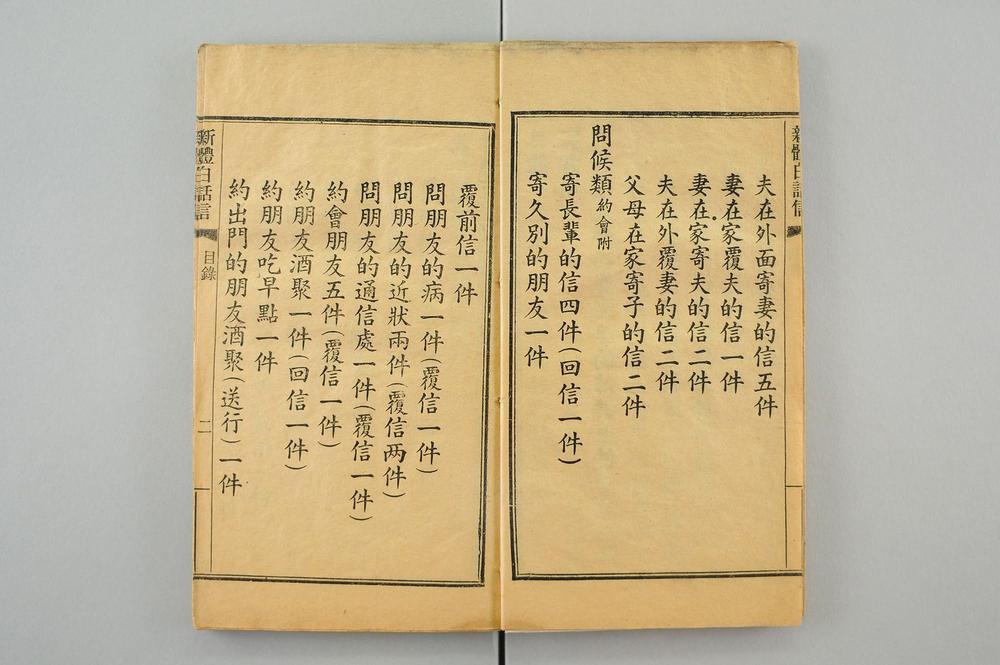 新體白話信
夫在外面寄妻的信五件
妻在家覆夫的信一件
妻在家寄夫的信二件
夫在外覆妻的信二件
父母在家寄子的信二件
問候類約會附
寄長輩的信四件(回信一件)
寄久別的朋友一件
覆前信一件
問朋友的病一件(覆信一件)
問朋友的近狀兩件(覆信两件)
問朋友的通信處一件(覆信一件)
約會朋友五件(覆信一件)
約朋友酒聚一件(回信一件)
約朋友吃早點一件
約出門的朋友酒聚(送行)一件
新體白話信
目錄
二